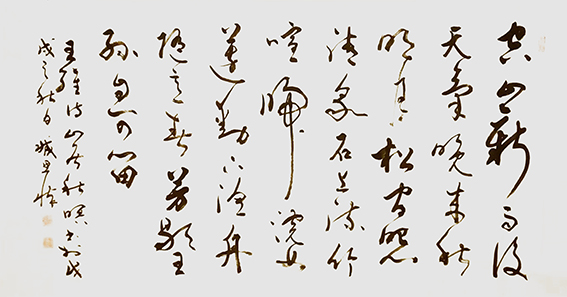 空山新雨後
天氣晚来秋
明月松间照
清泉石上流竹
喧歸浣女
蓮動下漁舟
随意春芳歇王
孫自可留
王維诗山居秋暝书於戊
戌之秋月